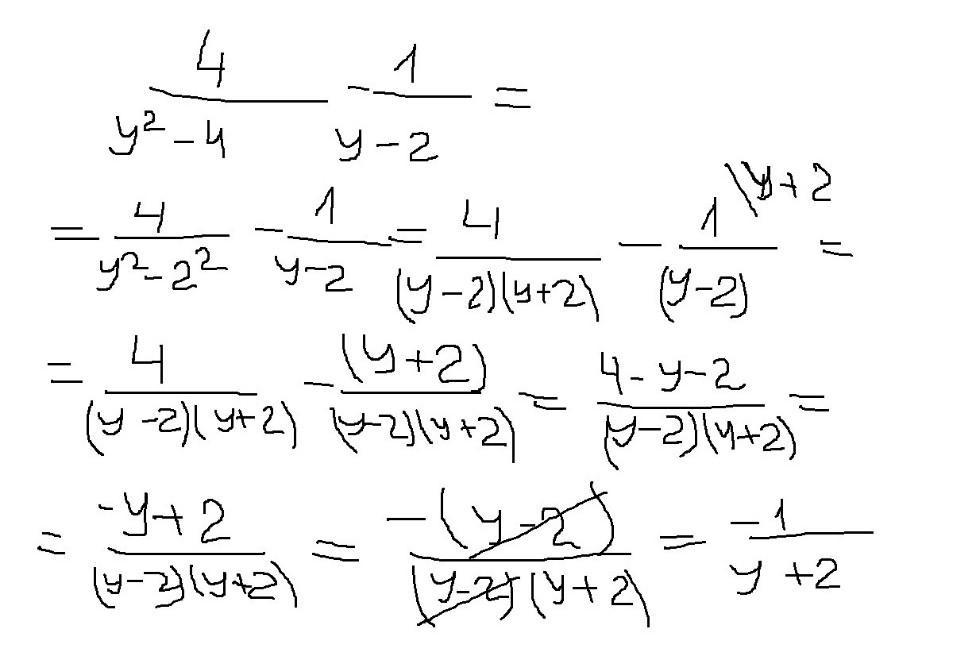 4/(y² - 4) - 1/(y - 2) =
= 4/(y² - 2²) - 1/(y - 2) = 4/((y - 2)(y + 2)) - 1\y + 2/(y - 2) =
= 4/((y - 2)(y + 2)) - (y + 2)/((y - 2)(y + 2)) = (4 - y - 2)/((y - 2)(y + 2)) =
= (-y + 2)/((y - 2)(y + 2)) = -(y - 2)/((y - 2)(y + 2)) = -1/(y + 2)